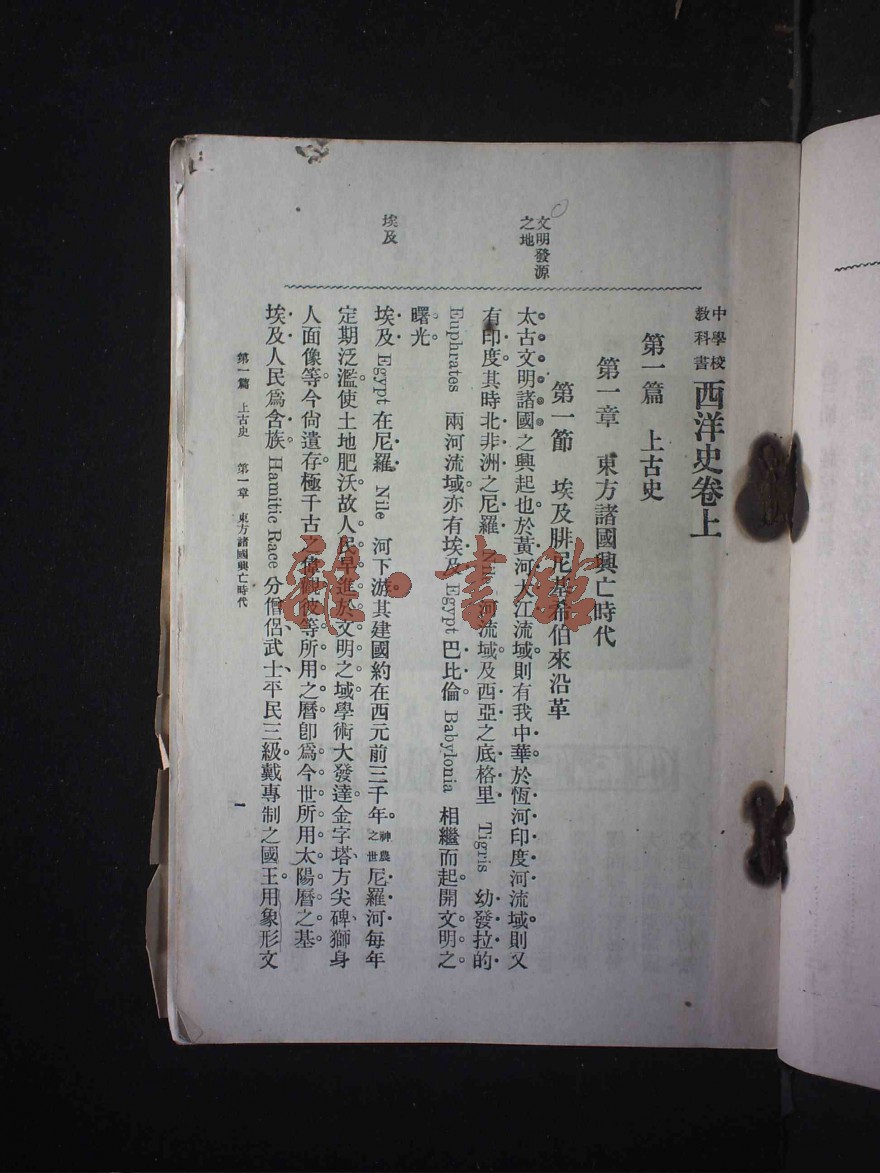 中學校
教科書 西洋史卷上
第一篇 上古史
第一章 東方諸國興亡時代
第一節 埃及腓尼基希伯來沿革
文明發源
之地
太古文明諸國之興起也於黃河大江流域則有我中華於恆河印度河流域則又
有印度其時北非洲之尼羅 Nile 河流域及西亞之底格里 Tigris 幼發拉的
Euphrates 兩河流域亦有埃及 Egypt 巴比倫 Babylonia 相繼而起開文明之
曙光。
埃及
埃及 Egypt 在尼羅 Nile 河下游其建國約在西元前三千年。神農之世 尼羅河每年
定期泛濫使土地肥沃故人民早進於文明之域學術大發達金字塔、方尖碑、獅身
人面像等今尙遺存極千古之偉觀彼等所用之曆卽爲今世所用太陽曆之基
埃及人民爲含族 Hamitic Race 分僧侶、武士、平民三級戴專制之國王。用象形文
第一篇 上古史 第一章 東方諸國興亡時代
一
雜·書館